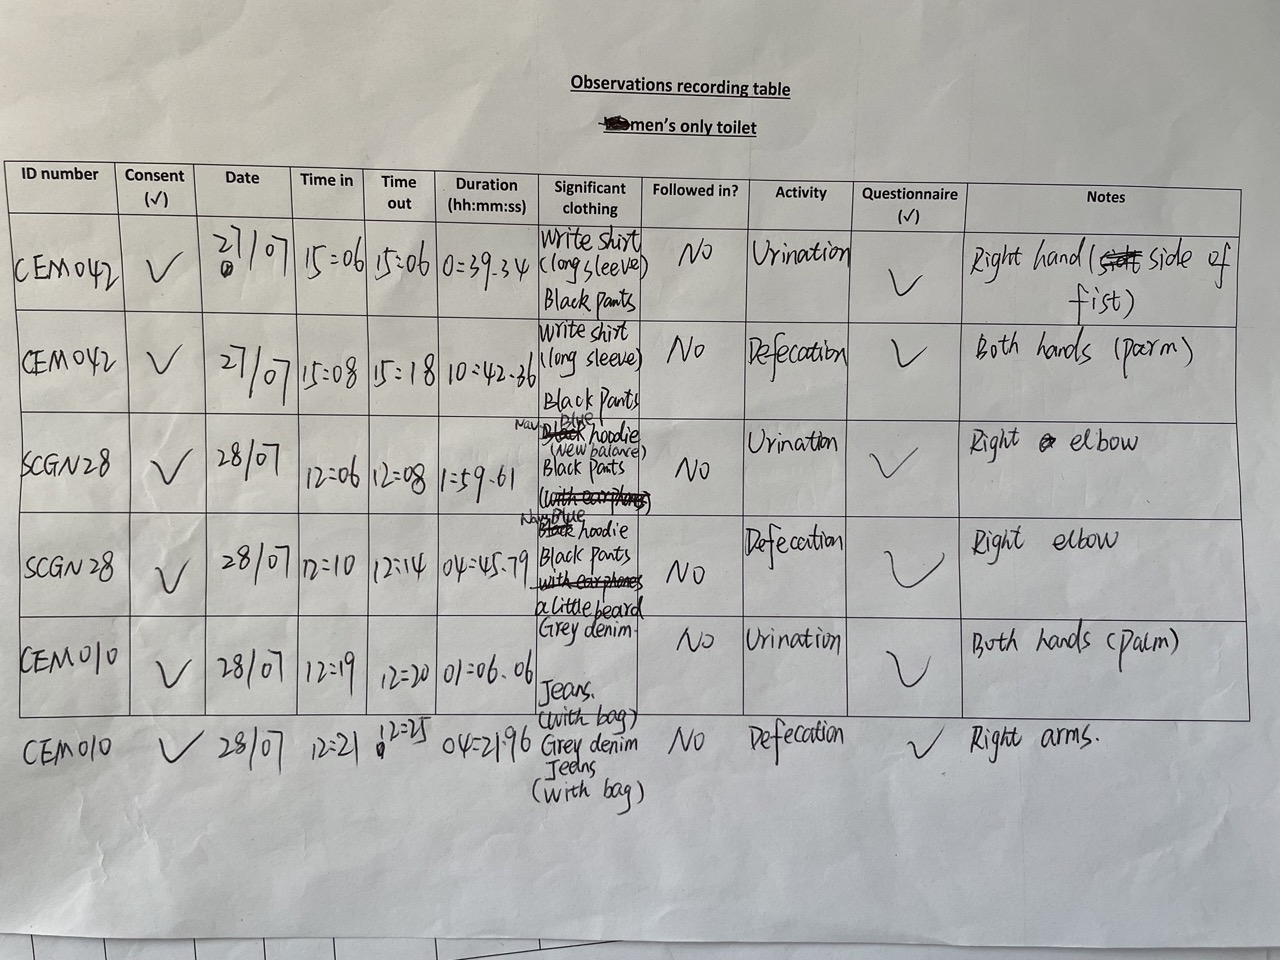 Observations recording table
men's only toilet
ID number Consent (✓) Date Time in Time out Duration (hh:mm:ss) Significant clothing Followed in? Activity Questionnaire (✓) Notes
CEM042 ✓ 27/07 15=06 15=06 0=39.34 Write shirt (long sleeve) Black pants No Urination ✓ Right hand (side of fist)
CEM042 ✓ 27/07 15=08 15=18 10=42.36 Write shirt (long sleeve) Black Pants No Defecation ✓ Both hands (parm)
SCGN28 ✓ 28/07 12=06 12=08 1=59.61 Navy Blue hoodie (new balance) Black Pants (with earphones) No Urination ✓ Right elbow
SCGN28 ✓ 28/07 12=10 12=14 04=45.79 Navy Blue hoodie Black Pants with earphones a little beard No Defecation ✓ Right elbow
CEM010 ✓ 28/07 12=19 12=20 01=06.06 Grey denim Jeans. (with bag) No Urination ✓ Both hands (palm)
CEM010 ✓ 28/07 12=21 12=25 04=21.96 Grey denim Jeans (with bag) No Defecation ✓ Right arms.